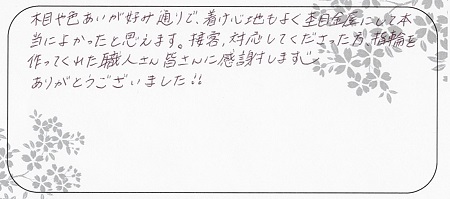 木目や色あいが好み通りで、着け心地もよく杢目金屋にして本
当によかったと思えます。接客、対応してくださった方、指輪を
作ってくれた職人さん皆さんに感謝します。
ありがとうございました!!